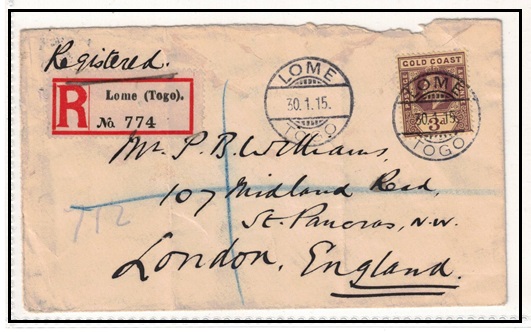 Registered.
R
Lome (Togo).
No. 774
LOME
30.1.15.
TOGO
GOLD COAST
LOME
30.1.15.
3d
TOGO
Mr. P. B. Williams,
107 Midland Road,
St. Pancras, N.W.
London, England.